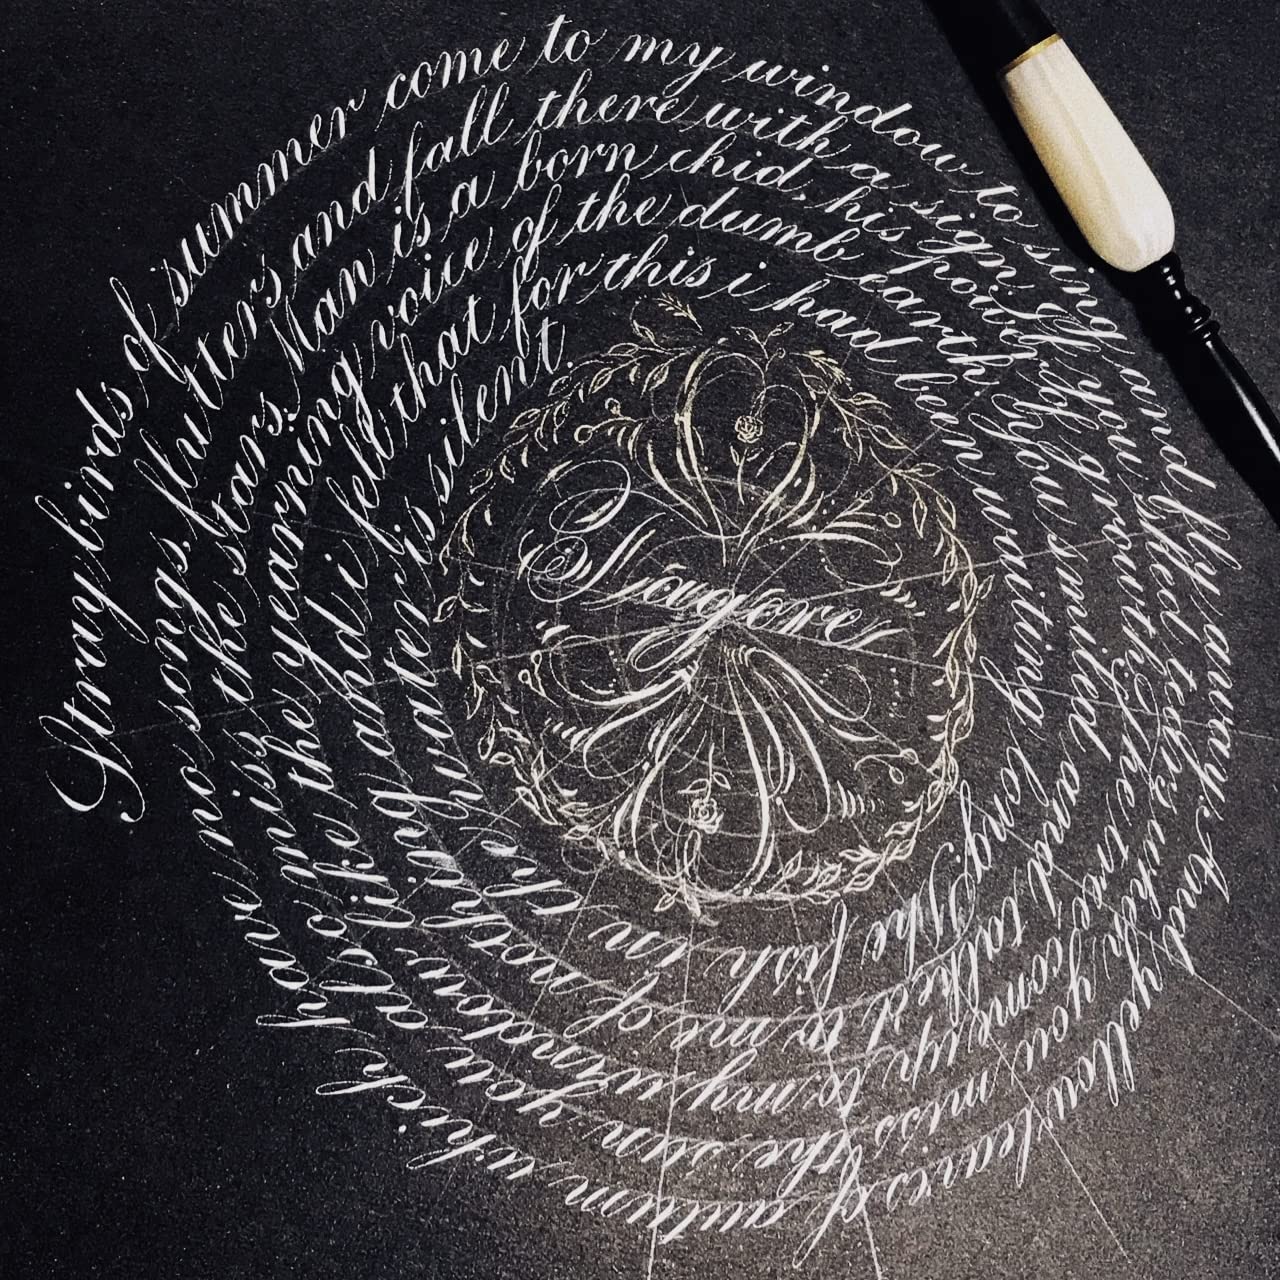 Stray birds of summer come to my window to sing and fly away. And yellow leaves of autum which have no songs, flutters and fall there with a sign. If you shed tears when you miss the sun you also miss the stars. Man is a born chid, his power of growth. The tree come up to my window like the yearning voice of the dumb earth. you smiled and talked to me of nothing and i felt that for this i had been waiting long. The fish in the water is silent.
Tagore